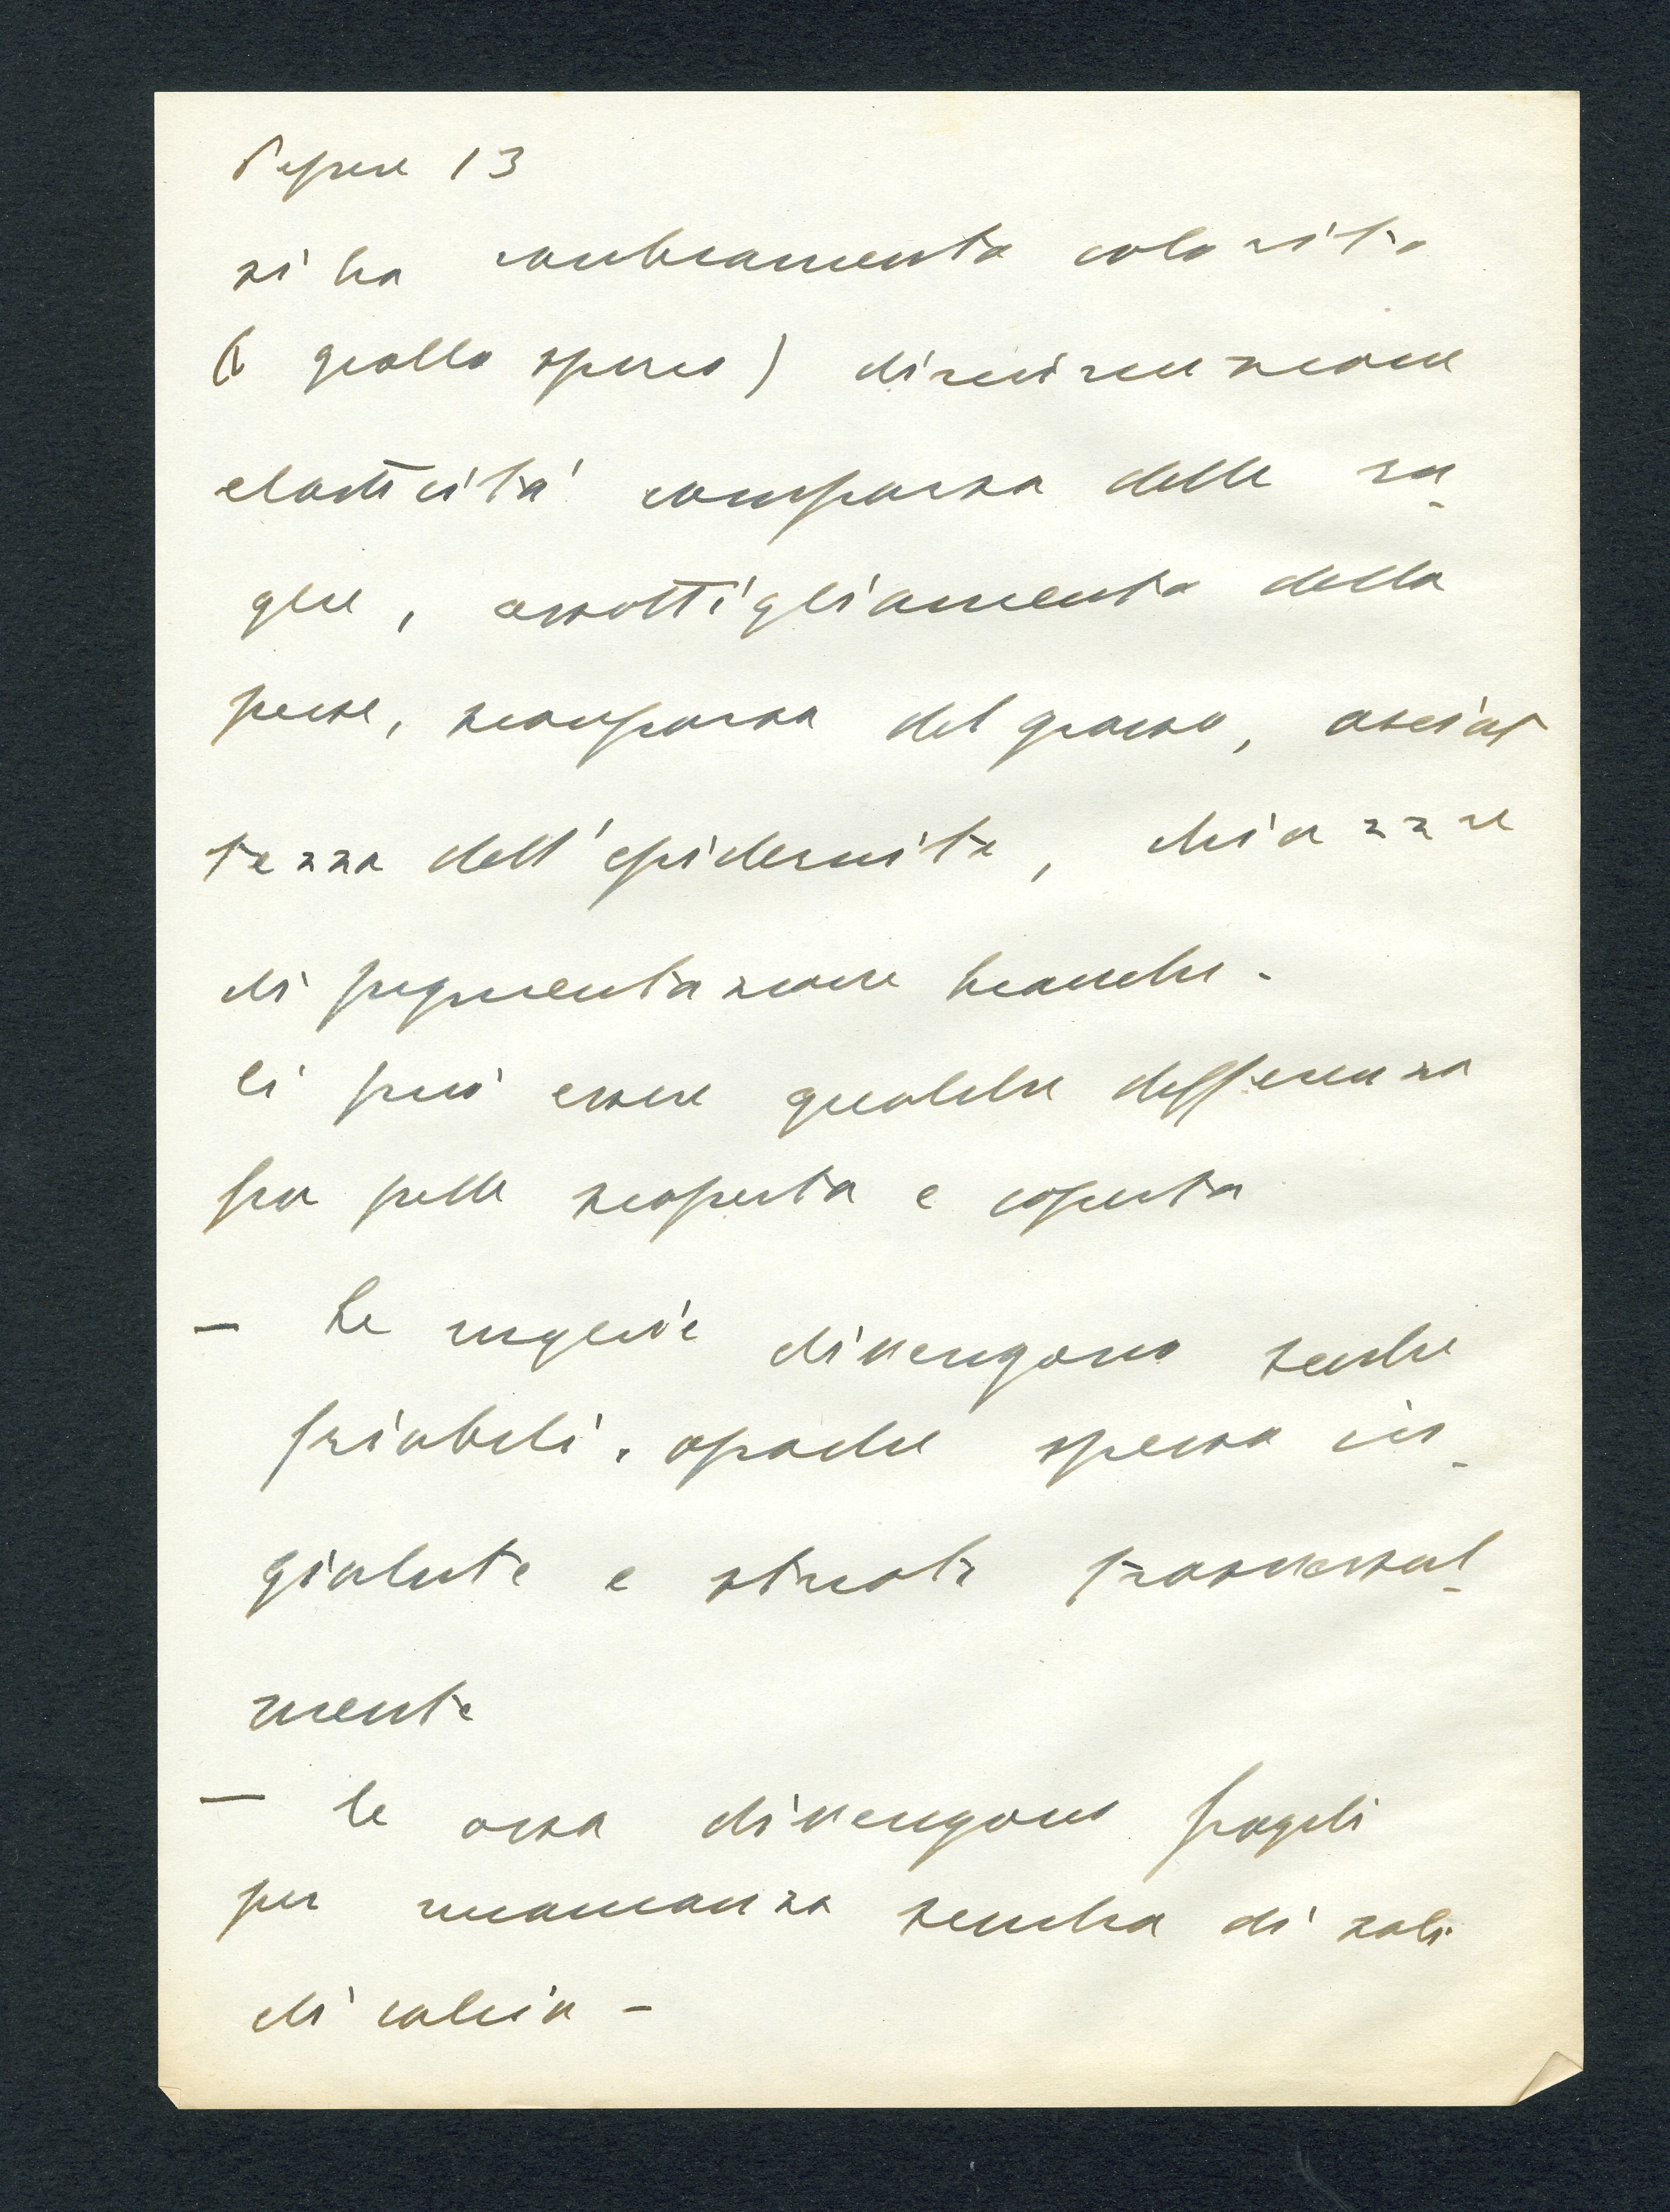 Pepere 13
si ha cambiamento colorito
( giallo sporco ) diminuzione
elasticità comparsa delle ru-
ghe, assottigliamento della
pelle, scomparsa del grasso, asciut
tezza dell'epidermite, chiazze
di pigmentazione bianche -
Ci può essere qualche differenza
fra pelle scoperta e coperta
- Le unghie divengono secche
friabili, opache spesso in-
giallite e striate trasversal-
mente
- le ossa divengono fragili
per mancanza di sali
di calcio -